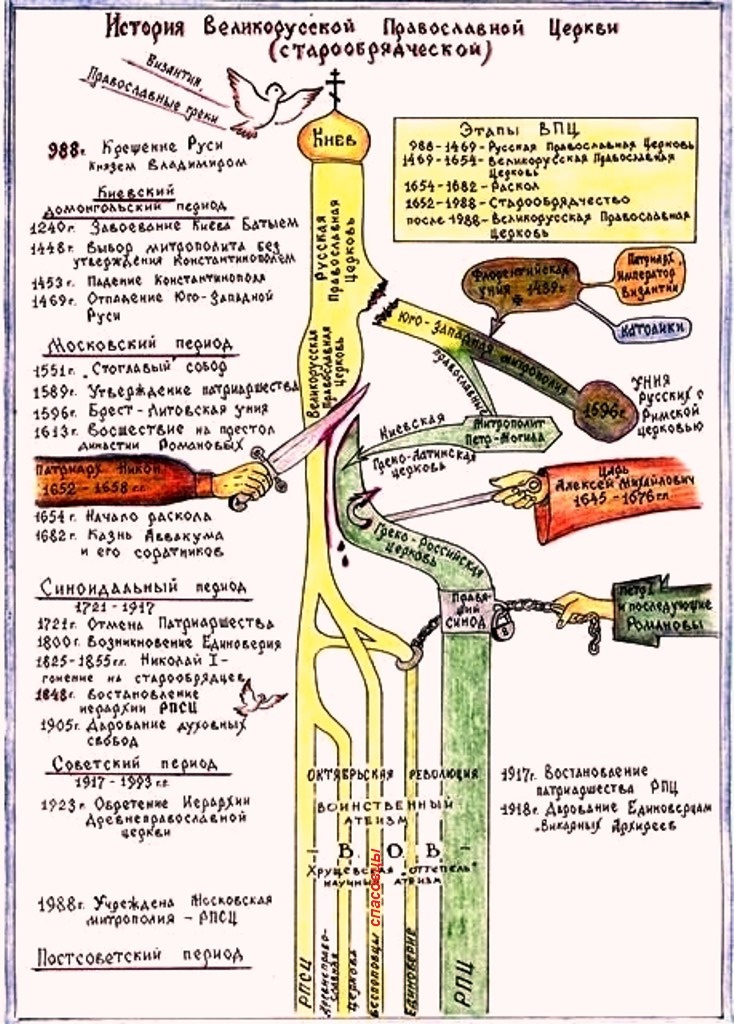 История Великорусской Православной Церкви
(старообрядческой)
Византия,
Православные греки
Киев
988г. Крещение Руси
князем Владимиром
Киевский
домонгольский период
1240г. Завоевание Киева Батыем
1448г. Выбор митрополита без
утверждения Константинополем
1453г. Падение Константинополя
1469г. Отпадение Юго-Западной
Руси
Этапы ВПЦ
988-1469-Русская Православная Церковь
1469-1654-Великорусская Православная
Церковь
1654-1682-Раскол
1652-1988-Старообрядчество
после 1988-Великорусская Православная
Церковь
Русская
Православная
Церковь
Флорентийская
уния
1439г.
Патриарх
Император
Византии
Католики
Юго-Западная митрополия
Православные
1596г.
Уния
Русских с
Римской
церковью
Московский период
1551г. „Стоглавый" собор
1589г. Утверждение патриаршества
1596г. Брест-Литовская уния
1613г. Восшествие на престол
династии Романовых
Великорусская
Православная
Церковь
Киевская
Греко-Латинская
церковь
Митрополит
Петр-Могила
Патриарх Никон
1652-1658г.г.
Царь
Алексей Михайлович
1645-1676г.г.
1654г. Начало раскола
1682г. Казнь Аввакума
и его соратников
Греко-Российская
Церковь
Правя-
щий
синод
Петр I
и последующие
Романовы
Синоидальный период
1721-1917
1721г. Отмена Патриаршества
1800г. Возникновение Единоверия
1825-1855г.г. Николай I-
гонение на старообрядцев
1848г. Востановление
иерархии РПСЦ
1905г. Дарование духовных
свобод
Советский период
1917-1993г.г.
1923г. Обретение Иерархии
Древнеправославной
церкви
Октябрьская революция
Воинственный
атеизм
- В. О. В. -
Хрущевская "оттепель"
научный атеизм
1917г. Востановление
патриаршества РПЦ
1918г. Дарование Единоверцам
Викарных Архиреев
1988г. Учреждена Московская
митрополия - РПСЦ
Постсоветский период
РПСЦ
Древнеправо-
славная
церковь
Беспоповцы
спасовцы
Единоверие
РПЦ